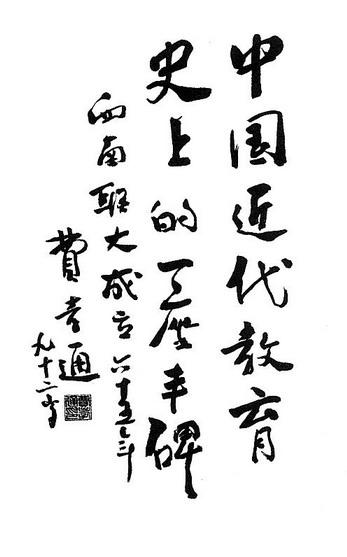 中国近代教育
史上的一座丰碑
西南联大成立六十五年
費孝通
九十二岁